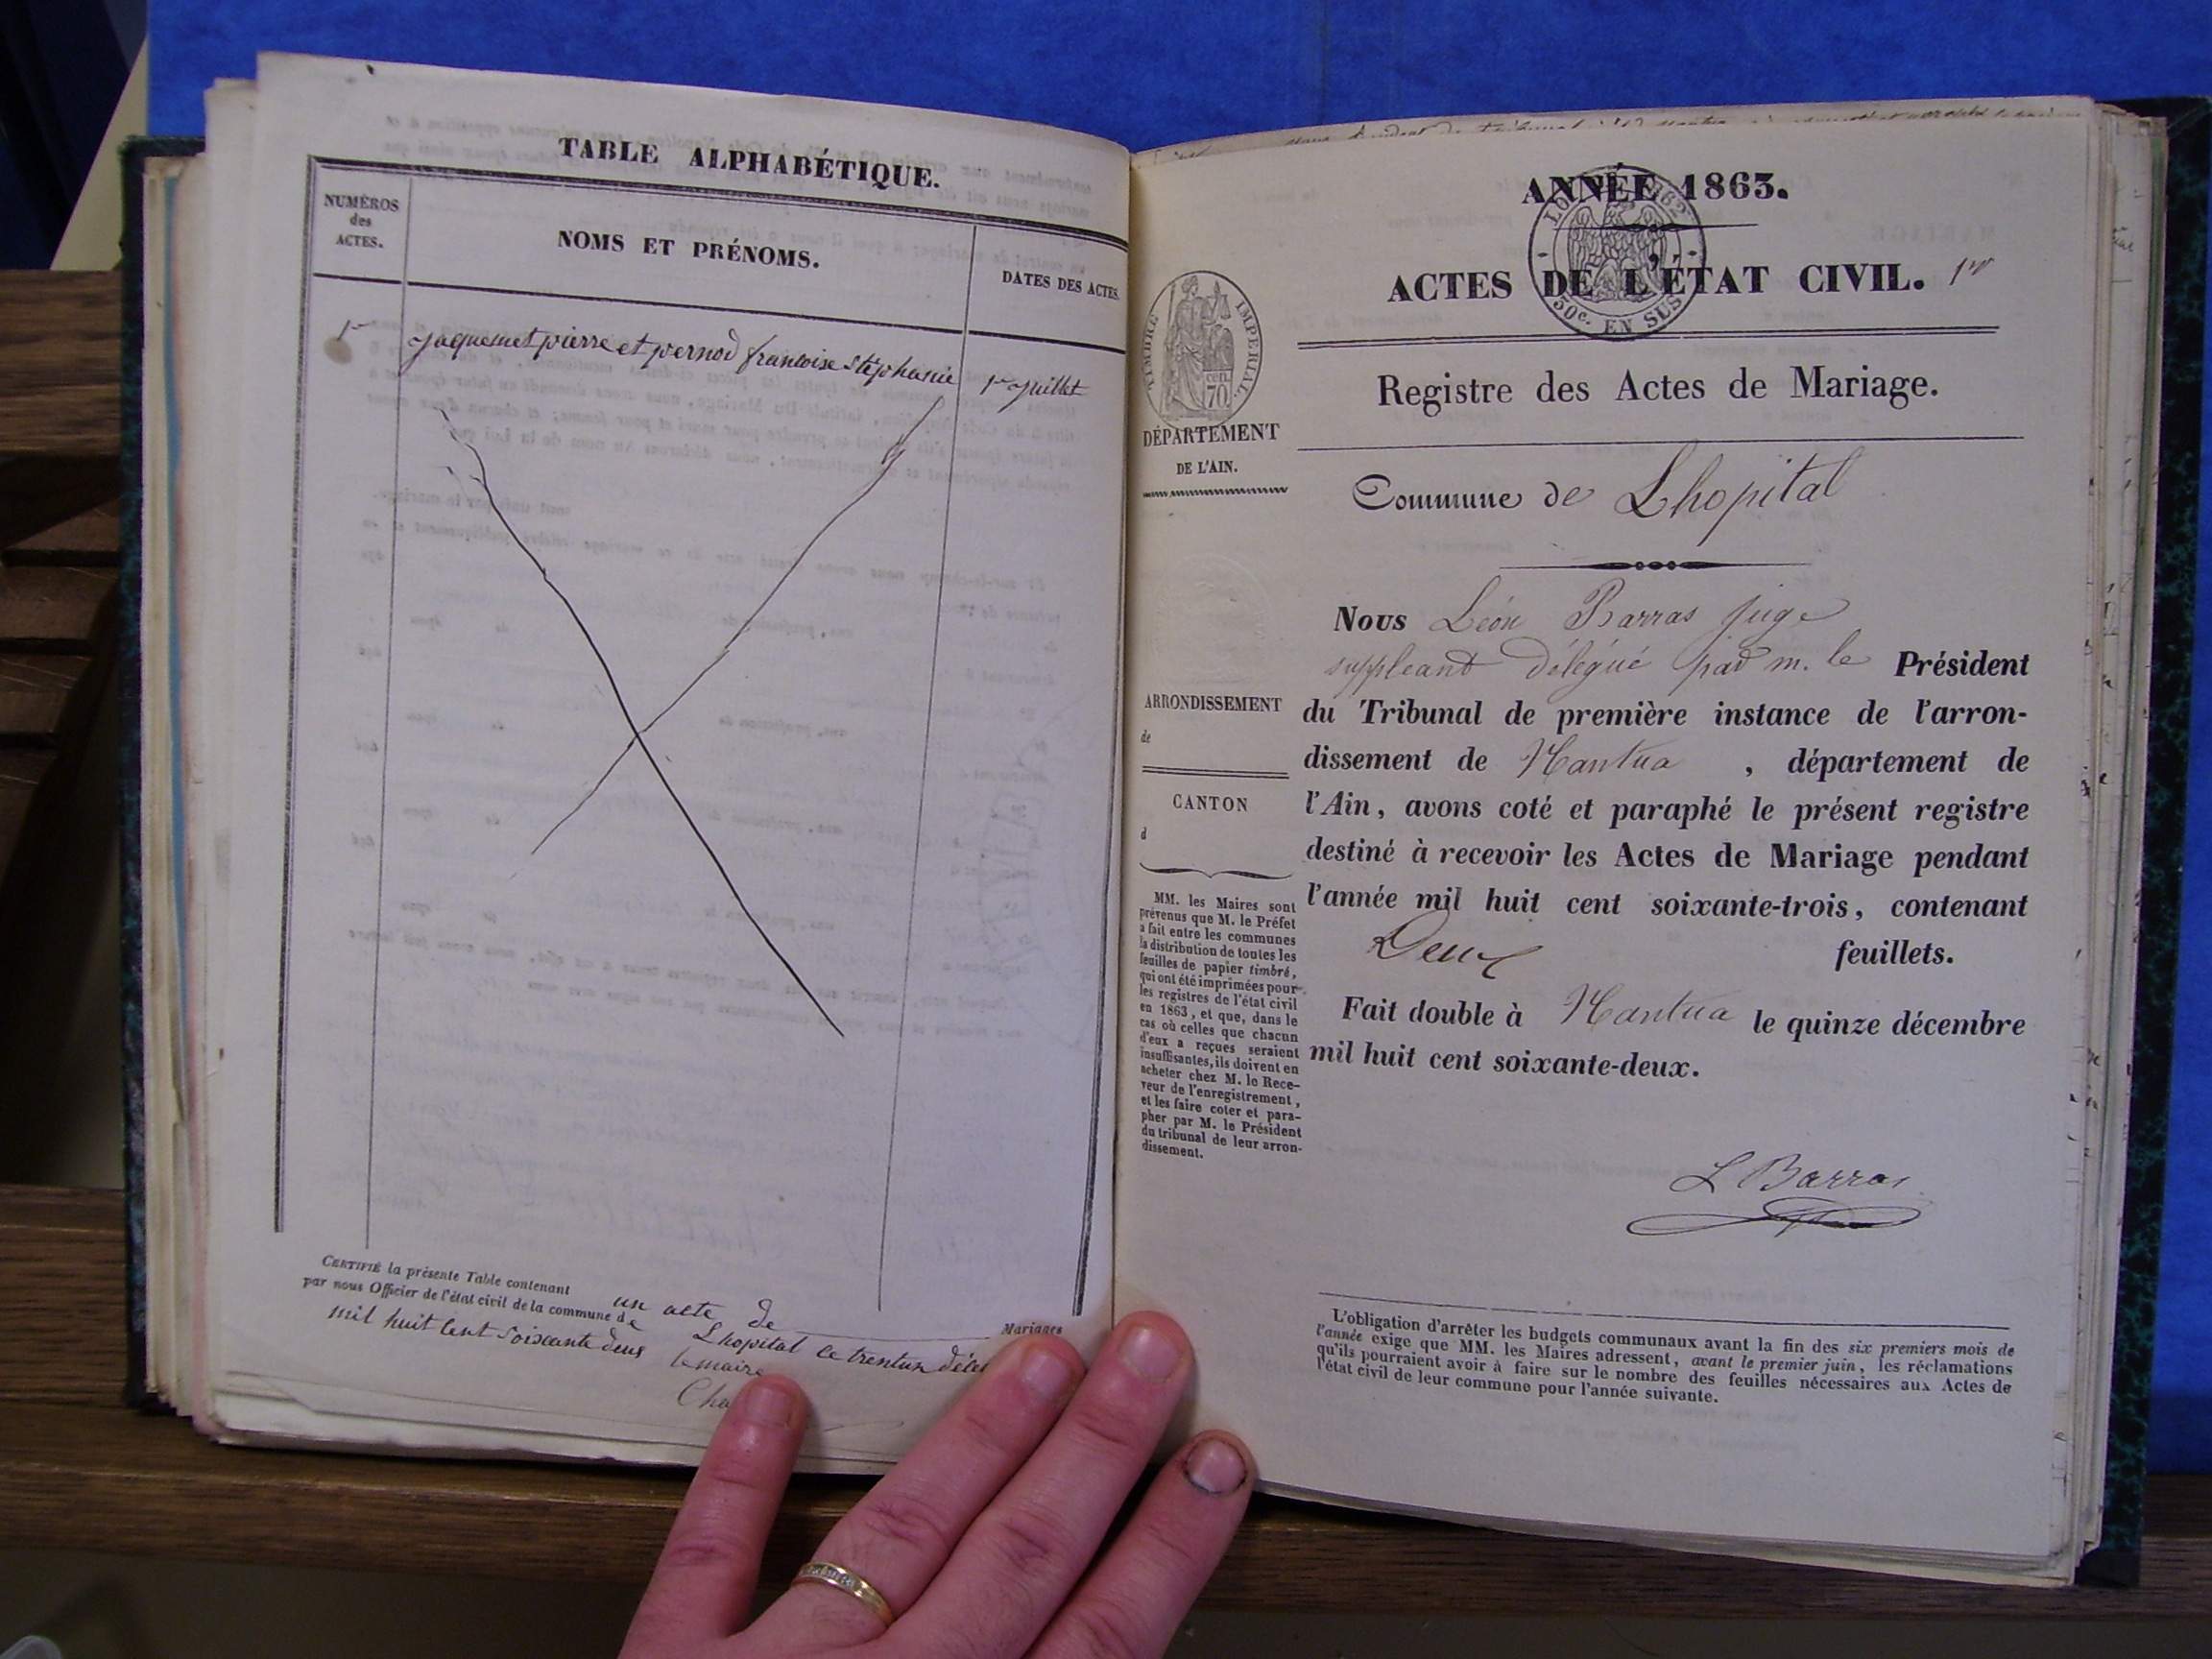 TABLE ALPHABÉTIQUE.
NUMÉROS
des
ACTES.
NOMS ET PRÉNOMS.
DATES DES ACTES.
1er
Jaquemet pierre et pernod francoise Stéphanie
1er Juillet
CERTIFIÉ la présente Table contenant un acte de Mariages
par nous Officier de l'état civil de la commune de Lhopital le trentun
mil huit cent soixante deux
le maire
ANNÉE 1863.
30c. EN SUS
ACTES DE L'ÉTAT CIVIL. 1er
TIMBRE IMPÉRIAL
70 cen
Registre des Actes de Mariage.
DÉPARTEMENT
DE L'AIN.
Commune de Lhopital
Nous Léon Barras juge
suppleant délégué par m. le Président
ARRONDISSEMENT
de
du Tribunal de première instance de l'arron-
dissement de Nantua , département de
CANTON
d
l'Ain, avons coté et paraphé le présent registre
destiné à recevoir les Actes de Mariage pendant
l'année mil huit cent soixante-trois, contenant
Deux feuillets.
Fait double à Nantua le quinze décembre
mil huit cent soixante-deux.
L Barras
MM. les Maires sont
prévenus que M. le Préfet
a fait entre les communes
la distribution de toutes les
feuilles de papier timbré,
qui ont été imprimées pour
les registres de l'état civil
en 1863, et que, dans le
cas où celles que chacun
d'eux a reçues seraient
insuffisantes, ils doivent en
acheter chez M. le Rece-
veur de l'enregistrement,
et les faire coter et para-
pher par M. le Président
du tribunal de leur arron-
dissement.
L'obligation d'arrêter les budgets communaux avant la fin des six premiers mois de
l'année exige que MM. les Maires adressent, avant le premier juin, les réclamations
qu'ils pourraient avoir à faire sur le nombre des feuilles nécessaires aux Actes de
l'état civil de leur commune pour l'année suivante.